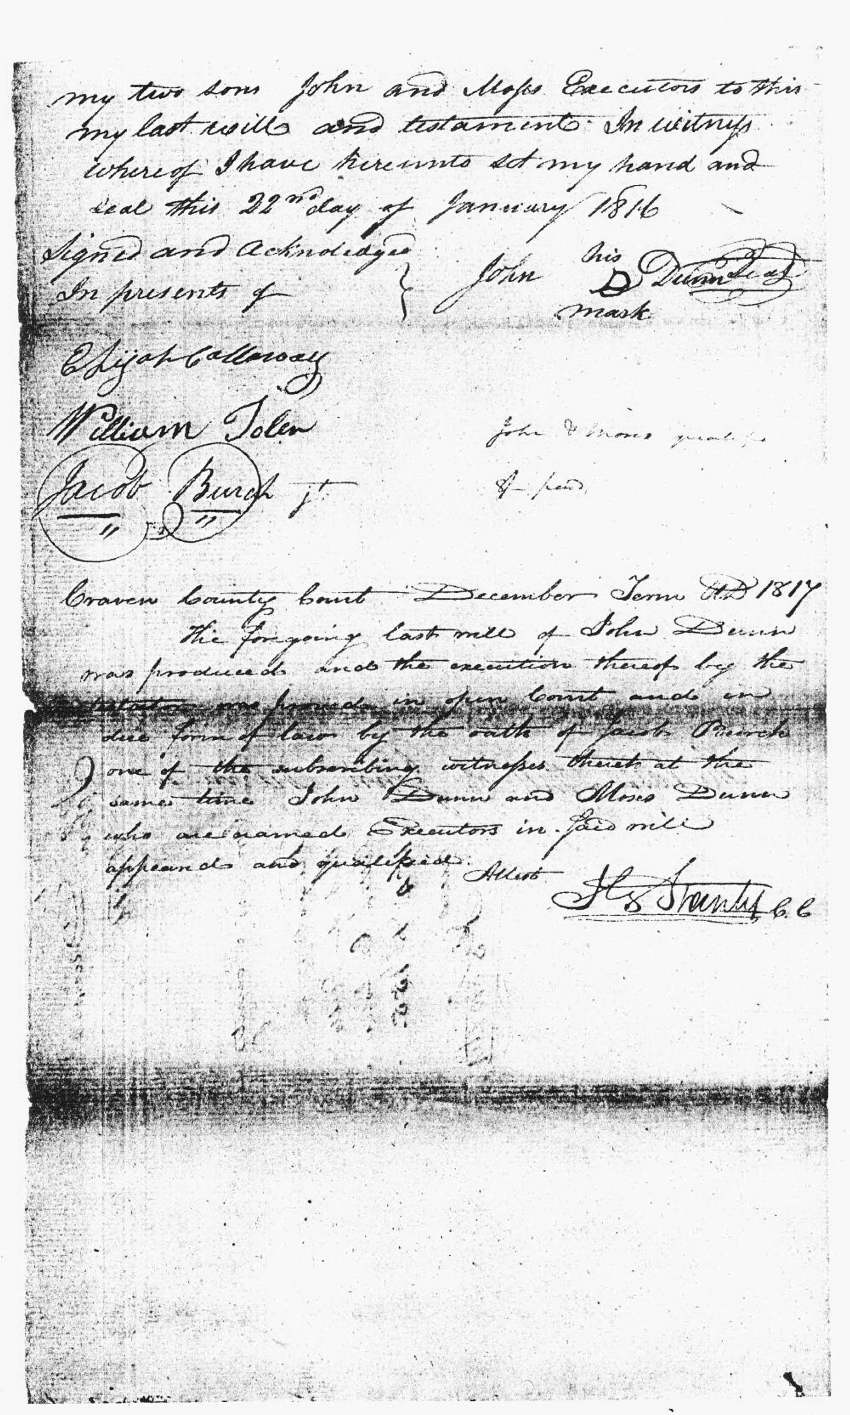 my two sons John and Moses Executors to this
my last will and testament. In witness
whereof I have hereunto set my hand and
seal this 22nd day of January 1816
Signed and Acknoledged
In presents of
John his D Dunn Seal
mark
Elijah Calloway
William Tolen
Jacob Burch
John & Moses qualified
& paid
Craven County Court December Term AD 1817
The foregoing last will of John Dunn
was produced and the execution thereof by the
testator was proved in open Court and in
due form of law by the oath of Jacob Burch
one of the subscribing witnesses thereto at the
same time John Dunn and Moses Dunn
who are named Executors in said will
appeared and qualified.
Attest
J G Stanly C. C